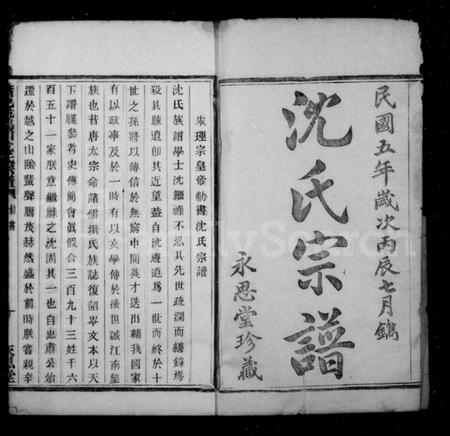 民國五年歲次丙辰七月鐫
沈氏宗譜
永思堂珍藏
宋理宗皇帝勅書沈氏宗譜
沈氏族譜學士沈繼祿不忍其先世疏濶而續錄焉
殺其疎遠卽其近墓盖自沈遵道爲一世而終於十
世之孫將以傳信於無窮中間英才迭出輔我國家
有以政事及於一時有以文學傳於後世誠江南望
族也昔唐太宗命諸儒撰氏族誌復詔岑文本以天
下譜牒參考史傳簡會眞假合三百九十三姓千六
百五十一家朕意繼祿之沈固其一也自恵肅公始
遷於越之山陰蜚聲騰茂赫然盛於前時朕嘗親幸
FamilySearch